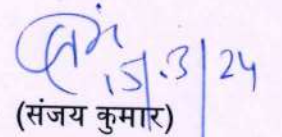 15.3/24
(संजय कुमार)